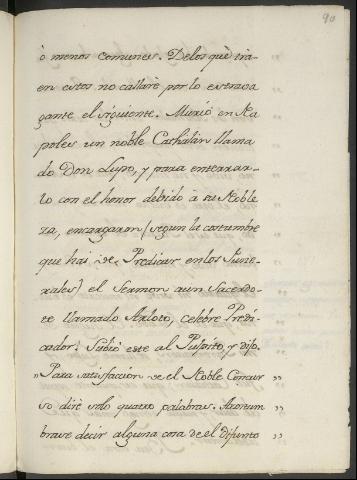 90
ò menos comunes. Delos què tra-
en estos no callarè por lo estrava
gante el siguiente. Muriò en Na
poles un noble Cathalàn llama
do Don Lupo, y para enterrar-
lo con el honor debido à su Noble
za, encargaron (segun la costumbre
que hai de Predicar en los Fune-
rales) el Sermon a un Sacerdo-
te llamado Arloto, celebre Predi-
cador. Subiò este al Pulpito, y dijo.
„ Para satisfaccion de el Noble Concur „
so dirè solo quatro palabras. „
brave decir alguna cosa de el difunto „